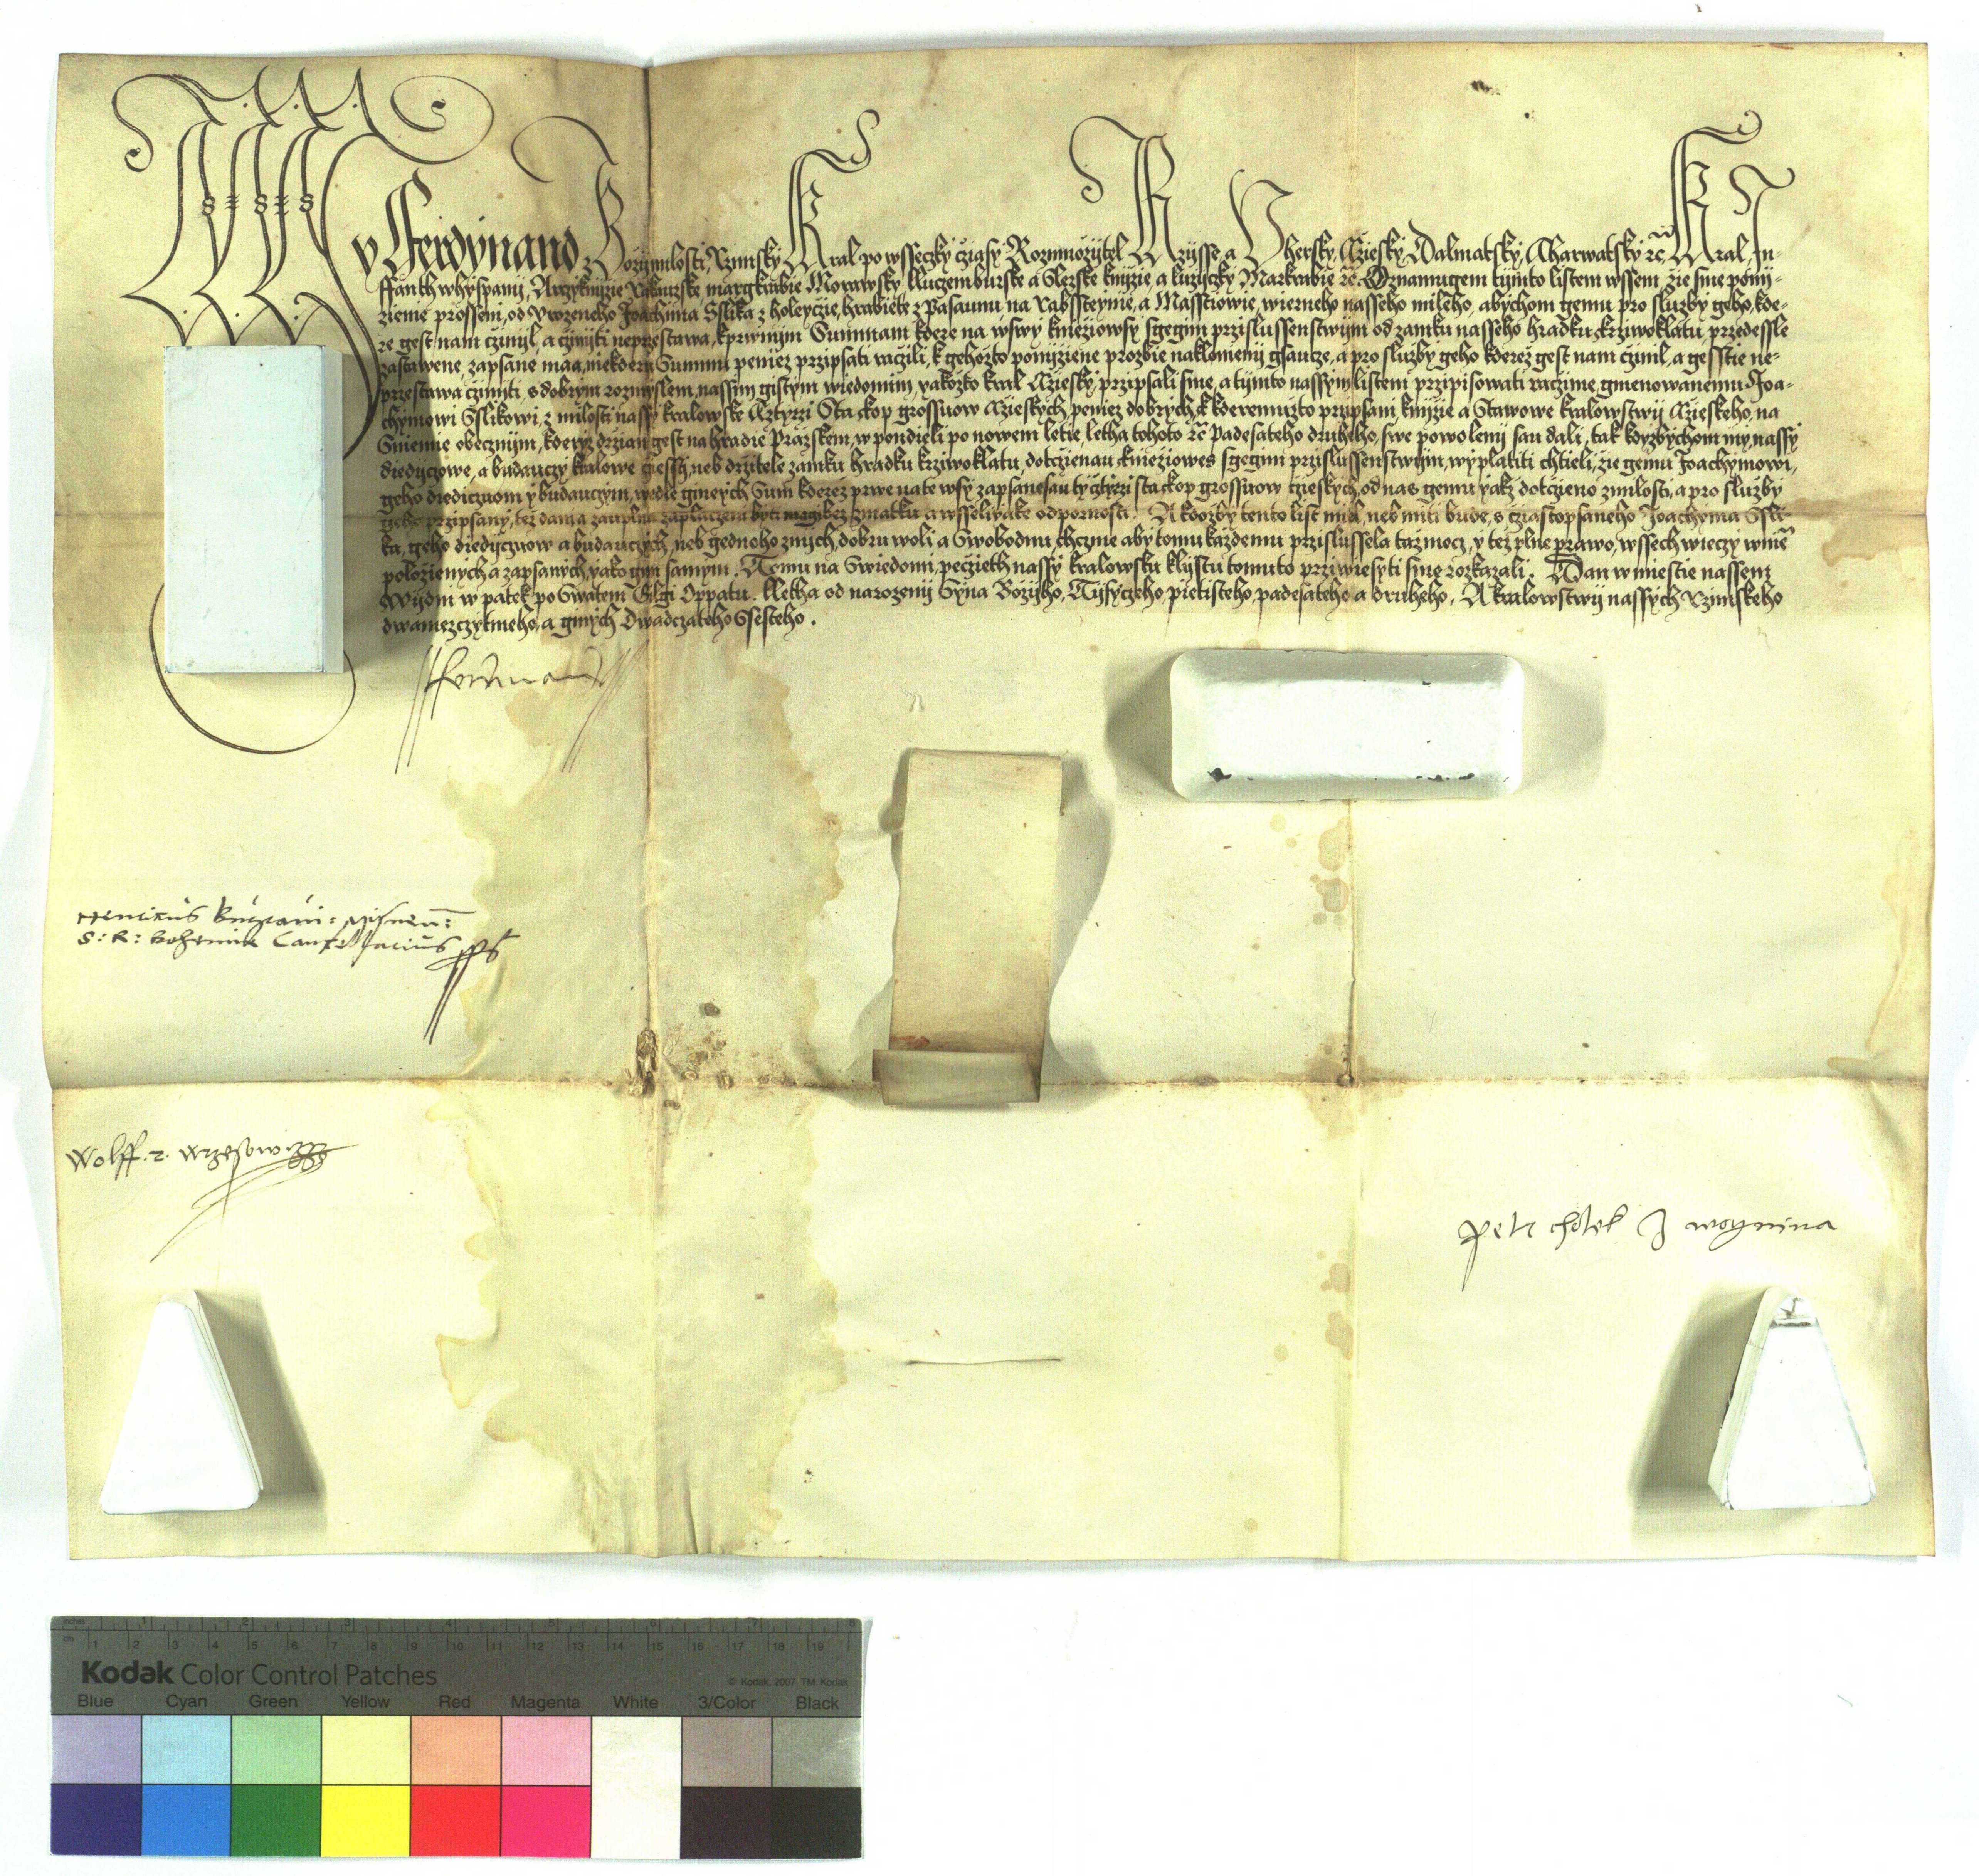 My Ferdynand z Boží milosti, Rzimsky Kral po wsseczky cziasy Rozmnožytel Rzijsse, a Uhersky, Cziesky, Dalmatsky, Charwatsky zc̃ Kral, In-
ffanth whyspanij, Arczyknijzie Rakauske margkrabie Morawsky, Luczemburske a Slezske knijzie, a luzyczky Markrabie zc̃. Oznamugem tijmto listem wssem, žie sme ponij-
zienie prosseni, od Urozeneho Joachima Sslika z holeyczie, hrabiete z Pasaunu na Rabssteynie, a Masstiowie, wierneho nasseho mileho, abychom gemu pro služby geho, kde-
re gest nam czinil, a czyniti neprzestawa, kprwnijm Summam kdere na wsy Kniežiowsy sgegim przislussenstwijm od zamku nasseho hradku Krziwoklatu, przedessle
zastawene, zapsane maa, niekderu Summu peniez przipsati raczili, k gehožto ponijziene prozbie naklonienij gsaucze, a pro služby geho kderež gest nam czinil, a gesstie ne-
przestawa cziniti, s dobrym rozmyslem, nassim gistym wiedomim, yakožto kral Cziesky, przipsali sme, a tijmto nassym listem przipisowati raczime, gmenowanemu Joa-
chymowi Sslikowi, z milosti nassy kralowske Cztyrzi Sta kop grossuow Czieskych, peniez dobrych, k kderemužto przypsani knijzie a Stawowe kralowstwij Czieskeho, na
Sniemie obecznijm, kderyž držian gest na hradie Pražskem, w pondieli po nowem letie letha tohoto zc̃ Padesateho druheho, swe powolenij sau dali, tak kdyžbychom my, nassy
diedyczowe, a budauczy kralowe czessti, neb držitele zamku hradku krziwoklatu, dotczienau Kniežiowes sgegim przislussenstwijm, wyplatiti chtieli, žie gemu Joachymowi,
geho diediczuom y budauczym, wedle ginych Sum kderež prwe na te wsy zapsane sau tyž cztyrzi sta kop grossuow czieskych, od nas gemu yakž dotczieno z milosti, a pro služby
geho przipsany, též dana a zauplna zaplaczena byti magi bez zmatku a wsseliyake odpornosti. A kdožby tento list miel, neb miti bude, s cziastopsaneho Joachyma Ssli-
ka, geho diedyczuow a budauczych, neb gednoho znych, dobru woli a Swobodnu, chczme aby tomu každemu przislussela taž mocz, y též plne prawo, wssech wieczy w niem̃
položienych a zapsanych, yako gim samym. Tomu na Swiedomi, peczieth nassy kralowsku k lystu tomuto przywiesyti sme rozkazali. Dan w miestie nassem
Wijdni w patek po Swatem Gilgi Oppatu. Letha od narozenij Syna Božijho, Tisyczeho, pietisteho, padesateho a druheho. A kralowstwij nassych Rzimskeho
dwamezczytmeho, a ginych Dwadczateho Ssesteho.
Ferdinand
Henricus Burgravi: Misnen:
S: R: Bohemiae Cancellarius sst
Wolff. z. Wrzesowicz
Petr chotek z woynina
Kodak Color Control Patches
© Kodak, 2007 TM: Kodak
Blue Cyan Green Yellow Red Magenta White 3/Color Black